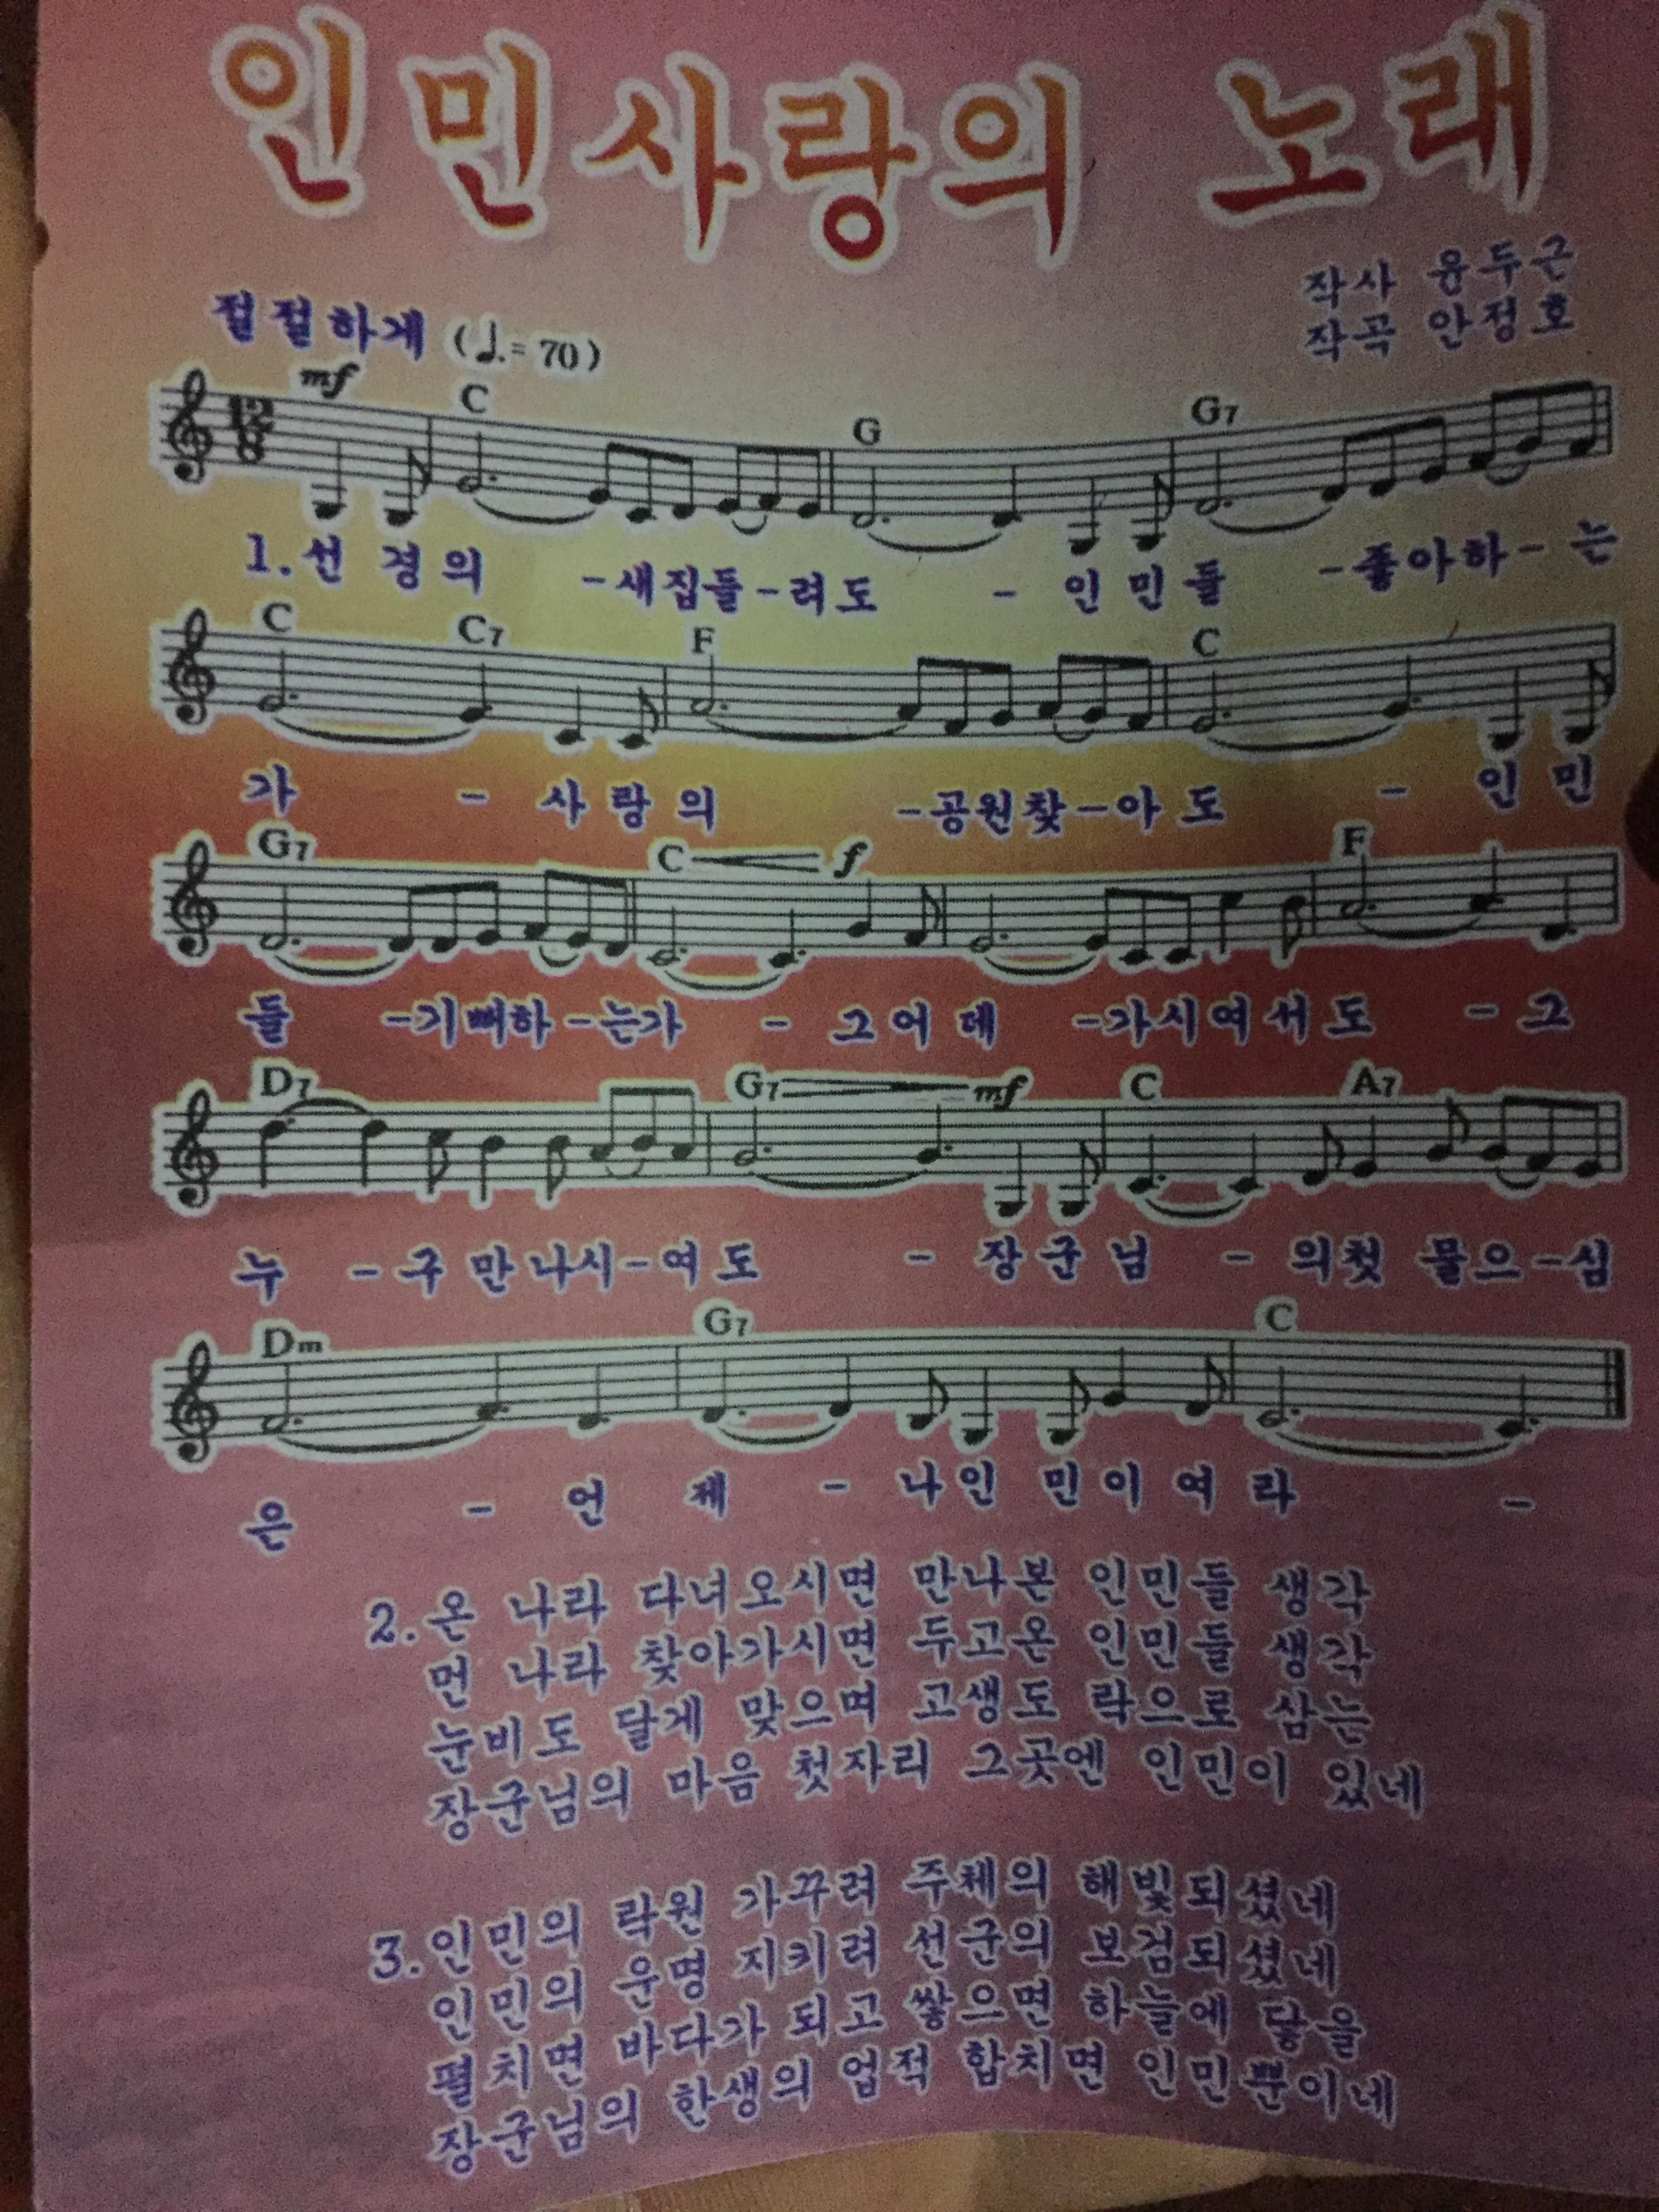 인민사랑의 노래
작사 윤두근
작곡 안정호
절절하게 (♩.= 70)
mf C G G7
12/8
1. 선 경의 -새집들-려도 - 인 민 들 -좋아하- 는
C C7 F C
가 - 사 랑 의 -공원찾-아 도 - 인 민
G7 C f F
들 -기뻐하-는가 - 그 어 데 -가시여서 도 - 그
D7 G7 mf C A7
누 -구 만 나시-여 도 - 장 군 님 - 의첫 물으-심
Dm G7 C
은 - 언 제 - 나인 민 이 여 라 -
2. 온 나라 다녀오시면 만나본 인민들 생각
먼 나라 찾아가시면 두고온 인민들 생각
눈비도 달게 맞으며 고생도 락으로 삼는
장군님의 마음 첫자리 그곳엔 인민이 있네
3. 인민의 락원 가꾸려 주체의 해빛되셨네
인민의 운명 지키려 선군의 보검되셨네
펼치면 바다가 되고 쌓으면 하늘에 닿을
장군님의 한생의 업적 합치면 인민뿐이네